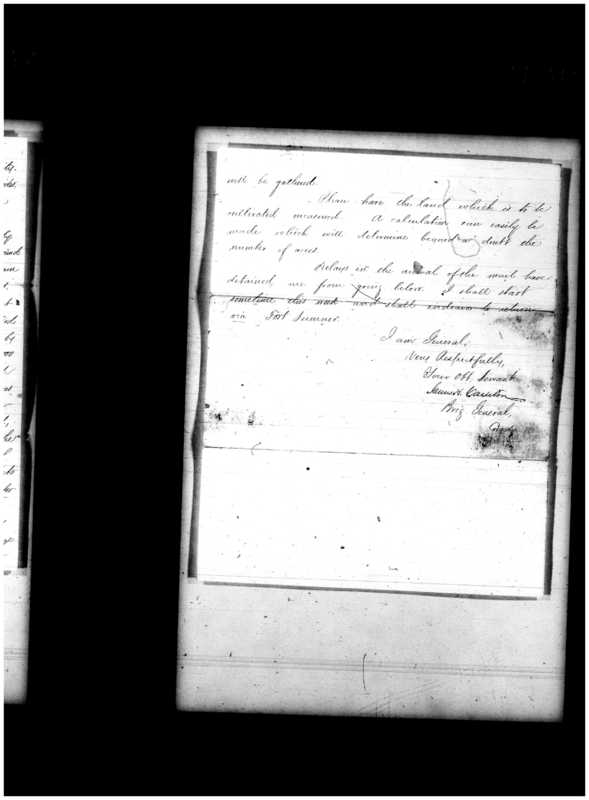 will be gathered.
Please have the land which is to be
cultivated measured. A calculation can easily be
made which will determine beyond a doubt the
number of acres.
Delays in the arrival of the mail have
detained me from going below. I shall start
sometime this week and shall endeavor to return
via Fort Sumner.
I am General,
Very Respectfully,
Your Obt Servant
James H. Carleton
Brig General,